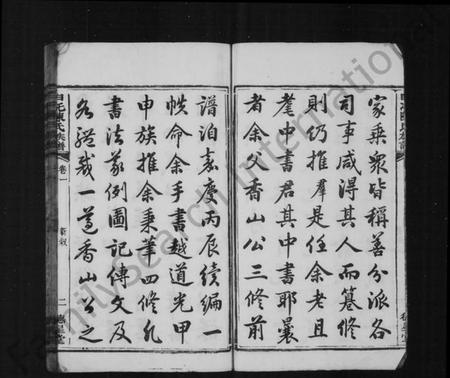 家乘眾皆稱善分派各
司事咸得其人而纂修
則仍推羣是任余老且
耄中書君其中書耶曩
者余父香山公三修前
譜泊嘉慶丙辰續編一
帙命余手書越道光甲
申族推余秉筆四修凡
書法義例圖記傳文及
各體裁一遵香山公之
陳氏族譜
卷一
二
FamilySearch International